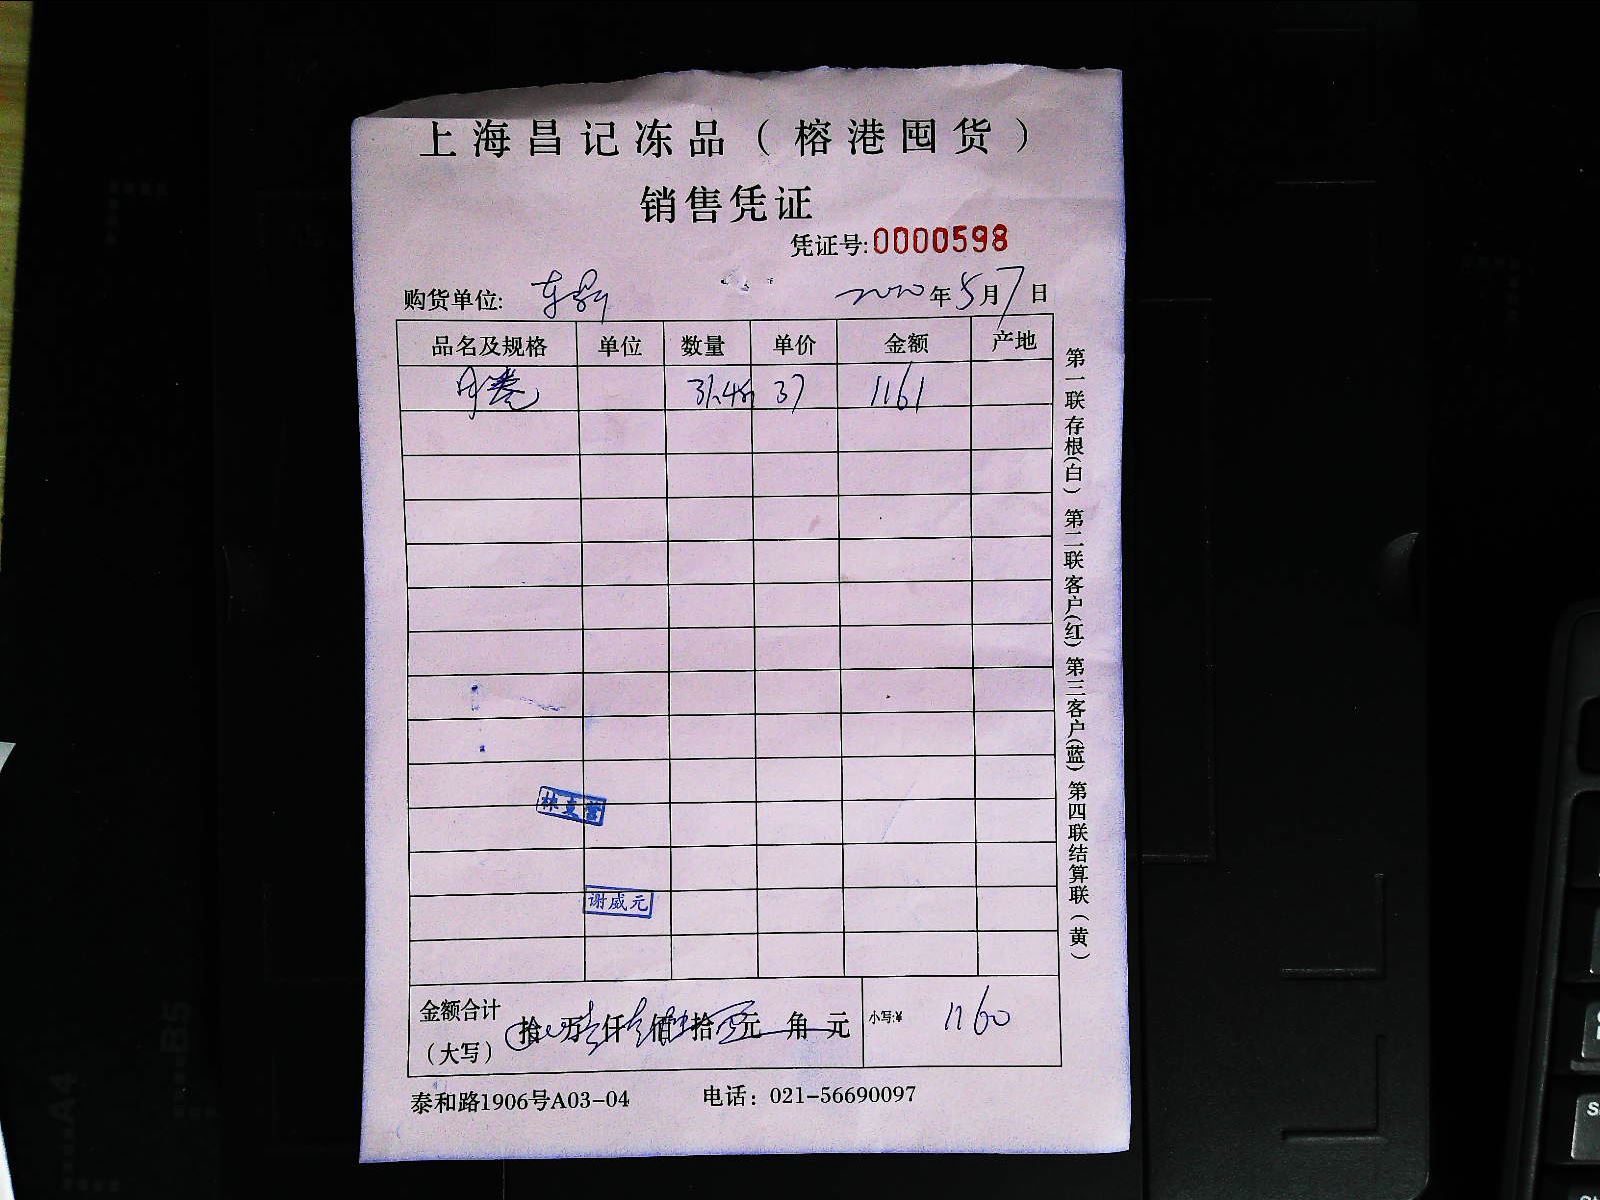 上海昌记冻品（榕港囤货）
销售凭证
凭证号:0000598
购货单位: 2020年5月7日
品名及规格 单位 数量 单价 金额 产地
月卷 37 1161
第一联存根(白) 第二联客户(红) 第三客户(蓝) 第四联结算联(黄)
谢威元
金额合计 拾 万 仟 佰 拾 元 角 元 小写:¥ 1160
（大写）
泰和路1906号A03-04 电话：021-56690097